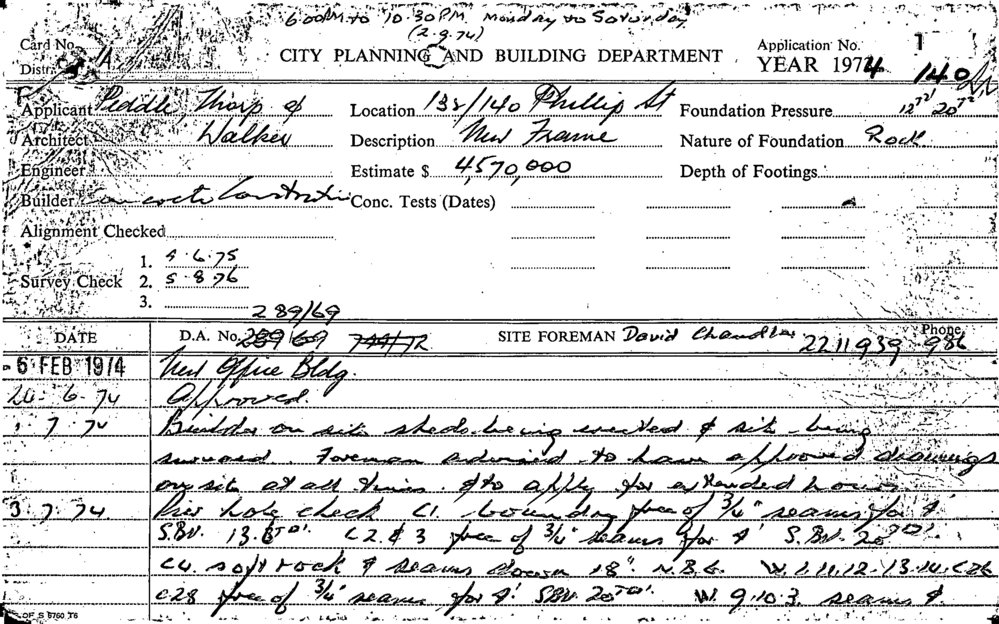 6.00AM to 10.30PM Monday to Saturday
(2.9.74)
Card No. Application No. 1
CITY PLANNING AND BUILDING DEPARTMENT
Distri A YEAR 1974 140
Applicant Peddle, Thorp & Location 138/140 Phillip St Foundation Pressure 12 20
Architect Walker Description New Frame Nature of Foundation Rock
Engineer Estimate $ 4,570,000 Depth of Footings
Builder Concrete Constructions Conc. Tests (Dates)
Alignment Checked
1. 4.6.75
Survey Check 2. 5.8.76
3.
289/69
DATE D.A. No. 289/69 744/72 SITE FOREMAN David Chandler Phone 2211939 986
6 FEB 1974 New Office Bldg.
20.6.74 Approved.
7.74 Builder on site sheds being erected & site being
surveyed. Foreman advised to have approved drawings
on site at all times & to apply for extended hours
3.7.74. Pier hole check C1. boundary free of 3/4" seams for 4'
S.BV. C2 & 3 free of 3/4" seams for 4' S.BV. 20
C4. soft rock & seams down 18". N.B.G. W.1.11.12.13.14. C26
C28 free of 3/4" seams for 4' SBV 20 W. 9.10.3. seams &.
OF S 8760 T6